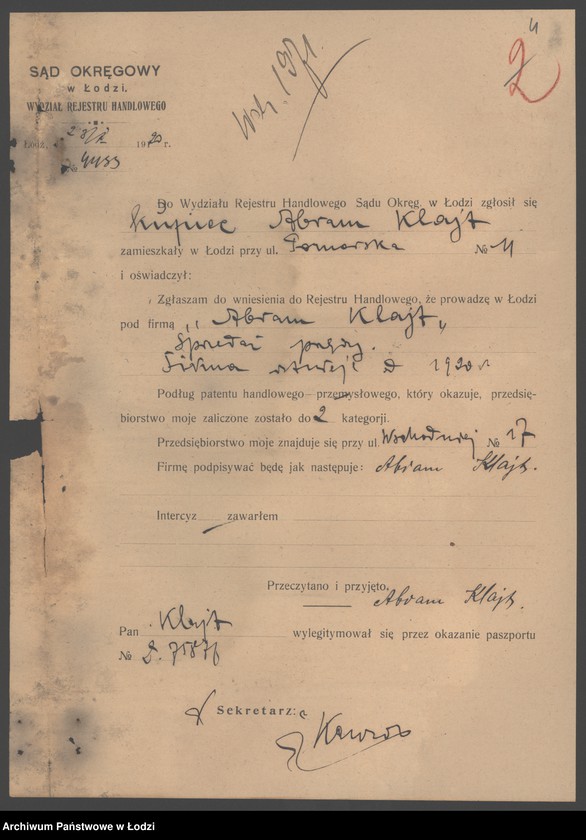 4
2
Wsch. 1971.
SĄD OKRĘGOWY
w Łodzi.
WYDZIAŁ REJESTRU HANDLOWEGO
Łódź, d. 28/X 1920 r.
№ 4433
Do Wydziału Rejestru Handlowego Sądu Okręg. w Łodzi zgłosił się
kupiec Abram Klajt
zamieszkały w Łodzi przy ul. Pomorska № 11
i oświadczył:
Zgłaszam do wniesienia do Rejestru Handlowego, że prowadzę w Łodzi
pod firmą „Abram Klajt„
Sprzedaż
Firma istnieje 1920 r
Podług patentu handlowego przemysłowego, który okazuje, przedsię-
biorstwo moje zaliczone zostało do 2 kategorji.
Przedsiębiorstwo moje znajduje się przy ul. Wschodniej № 17
Firmę podpisywać będę jak następuje: Abram Klajt.
Intercyz zawarłem
Przeczytano i przyjęto.
Abram Klajt.
Pan Klajt wylegitymował się przez okazanie paszportu
№
Sekretarz:
Archiwum Państwowe w Łodzi